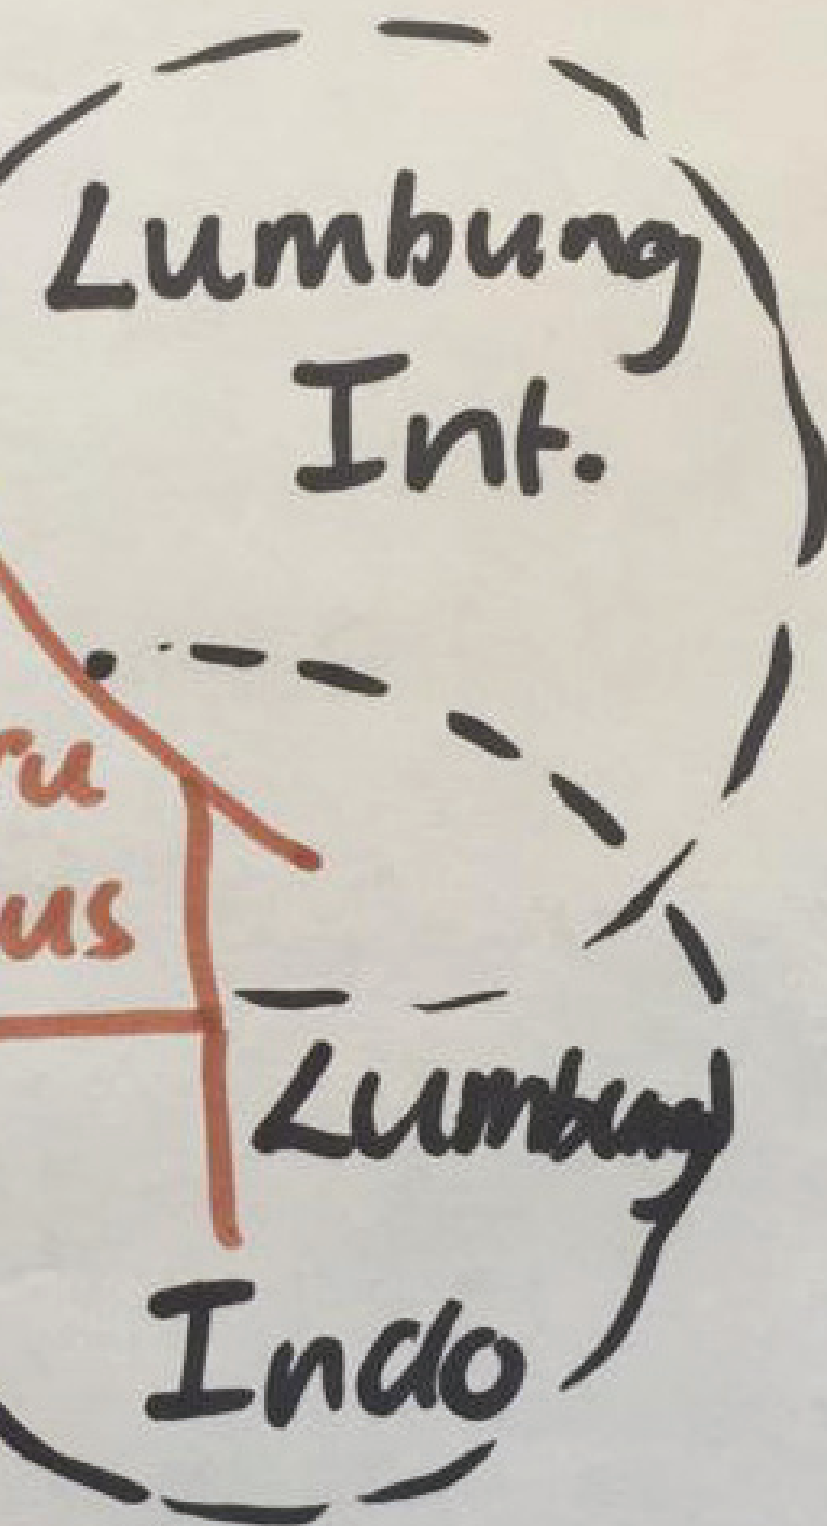 Lumbung
Int.
ru
us
Lumbung
Indo